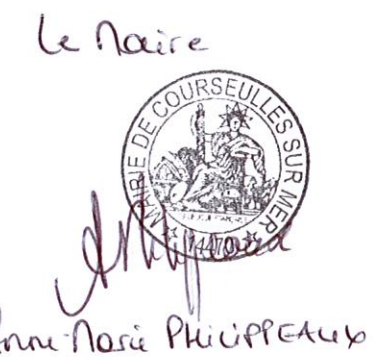 Le Maire
MAIRIE DE COURSEULLES SUR MER
14470
Anne-Marie PHILIPPEAUX